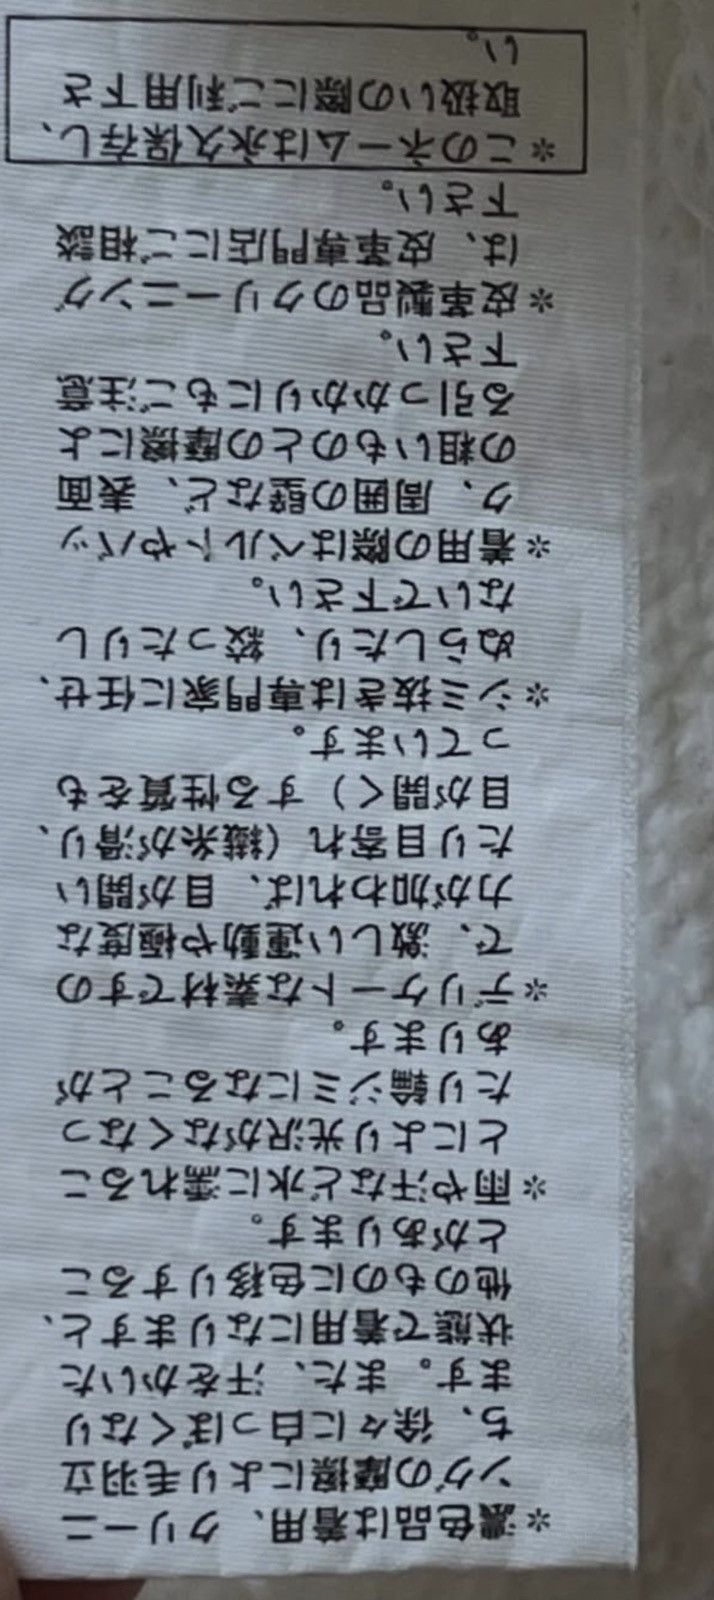 ＊濃色品は着用、クリーニ
ングの摩擦により毛羽立
ち、徐々に白っぽくなり
ます。また、汗をかいた
状態で着用になりますと、
他のものに色移りするこ
とがあります。
＊雨や汗など水に濡れるこ
とにより光沢がなくなっ
たり輪ジミになることが
あります。
＊デリケートな素材ですの
で、激しい運動や極度な
力が加われば、目が開い
たり目寄れ（繊糸が滑り、
目が開く）する性質をも
っています。
＊シミ抜きは専門家に任せ、
ぬらしたり、絞ったりし
ないで下さい。
＊着用の際はベルトやバッ
ク、周囲の壁など、表面
の粗いものとの摩擦によ
る引っかかりにもご注意
下さい。
＊皮革製品のクリーニング
は、皮革専門店にご相談
下さい。
＊このネームは永久保存し、
取扱いの際にご利用下さ
い。